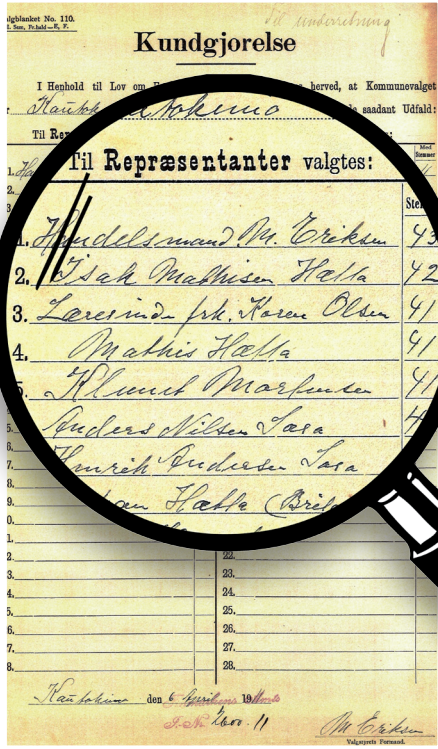 Valgblanket No. 110.
Til underretning
Kundgjørelse
I Henhold til Lov om herved, at Kommunevalget
Kautokeino saadant Udfald:
Til Repræsentanter valgtes:
Med
Stemmer
1. Handelsmand M. Eriksen 43
2. Isak Mathisen Hætta 42
3. Lærerinde frk. Karen Olsen 41
4. Mathis Hætta 41
5. Klemet Mortensen 41
Anders Nilsen Sara
Henrik Andersen Sara
Hætta
22.
23.
24.
25.
26.
27.
28.
Kautokeino den 6 April 19
J. No. 11
M. Eriksen
Valgstyrets Formand.